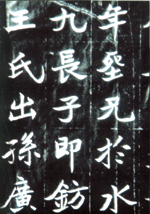 年兄於水
九長子即鈁
王氏出孫廣